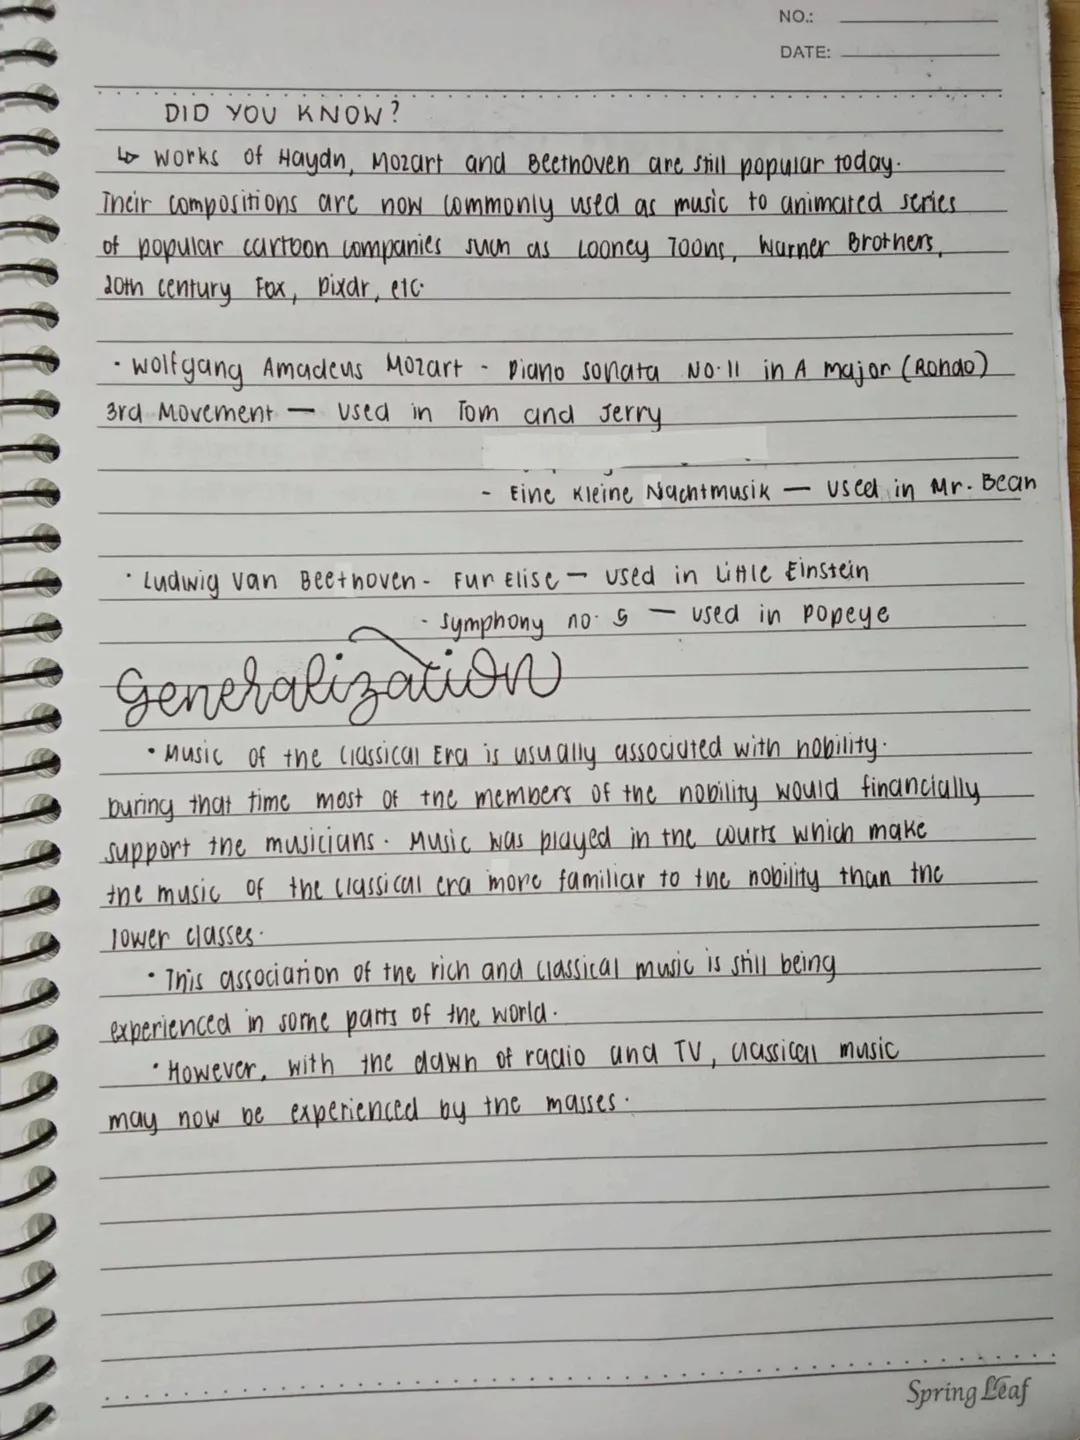 NO.:
DATE:
DID YOU KNOW?
↳ Works of Haydn, Mozart and Beethoven are still popular today.
Their compositions are now commonly used as music to animated series
of popular cartoon companies such as Looney Toons, Warner Brothers,
20th century Fox, Pixar, etc.
• Wolfgang Amadeus Mozart - Piano Sonata No. 11 in A major (Rondo)
3rd Movement — Used in Tom and Jerry
- Eine Kleine Nachtmusik — used in Mr. Bean
• Ludwig Van Beethoven - Fur Elise — used in Little Einstein
- Symphony no. 5 — used in Popeye
Generalization
• Music of the Classical Era is usually associated with nobility.
During that time most of the members of the nobility would financially
support the musicians. Music was played in the courts which make
the music of the classical era more familiar to the nobility than the
lower classes.
• This association of the rich and classical music is still being
experienced in some parts of the world.
• However, with the dawn of radio and TV, classical music
may now be experienced by the masses.
Spring Leaf